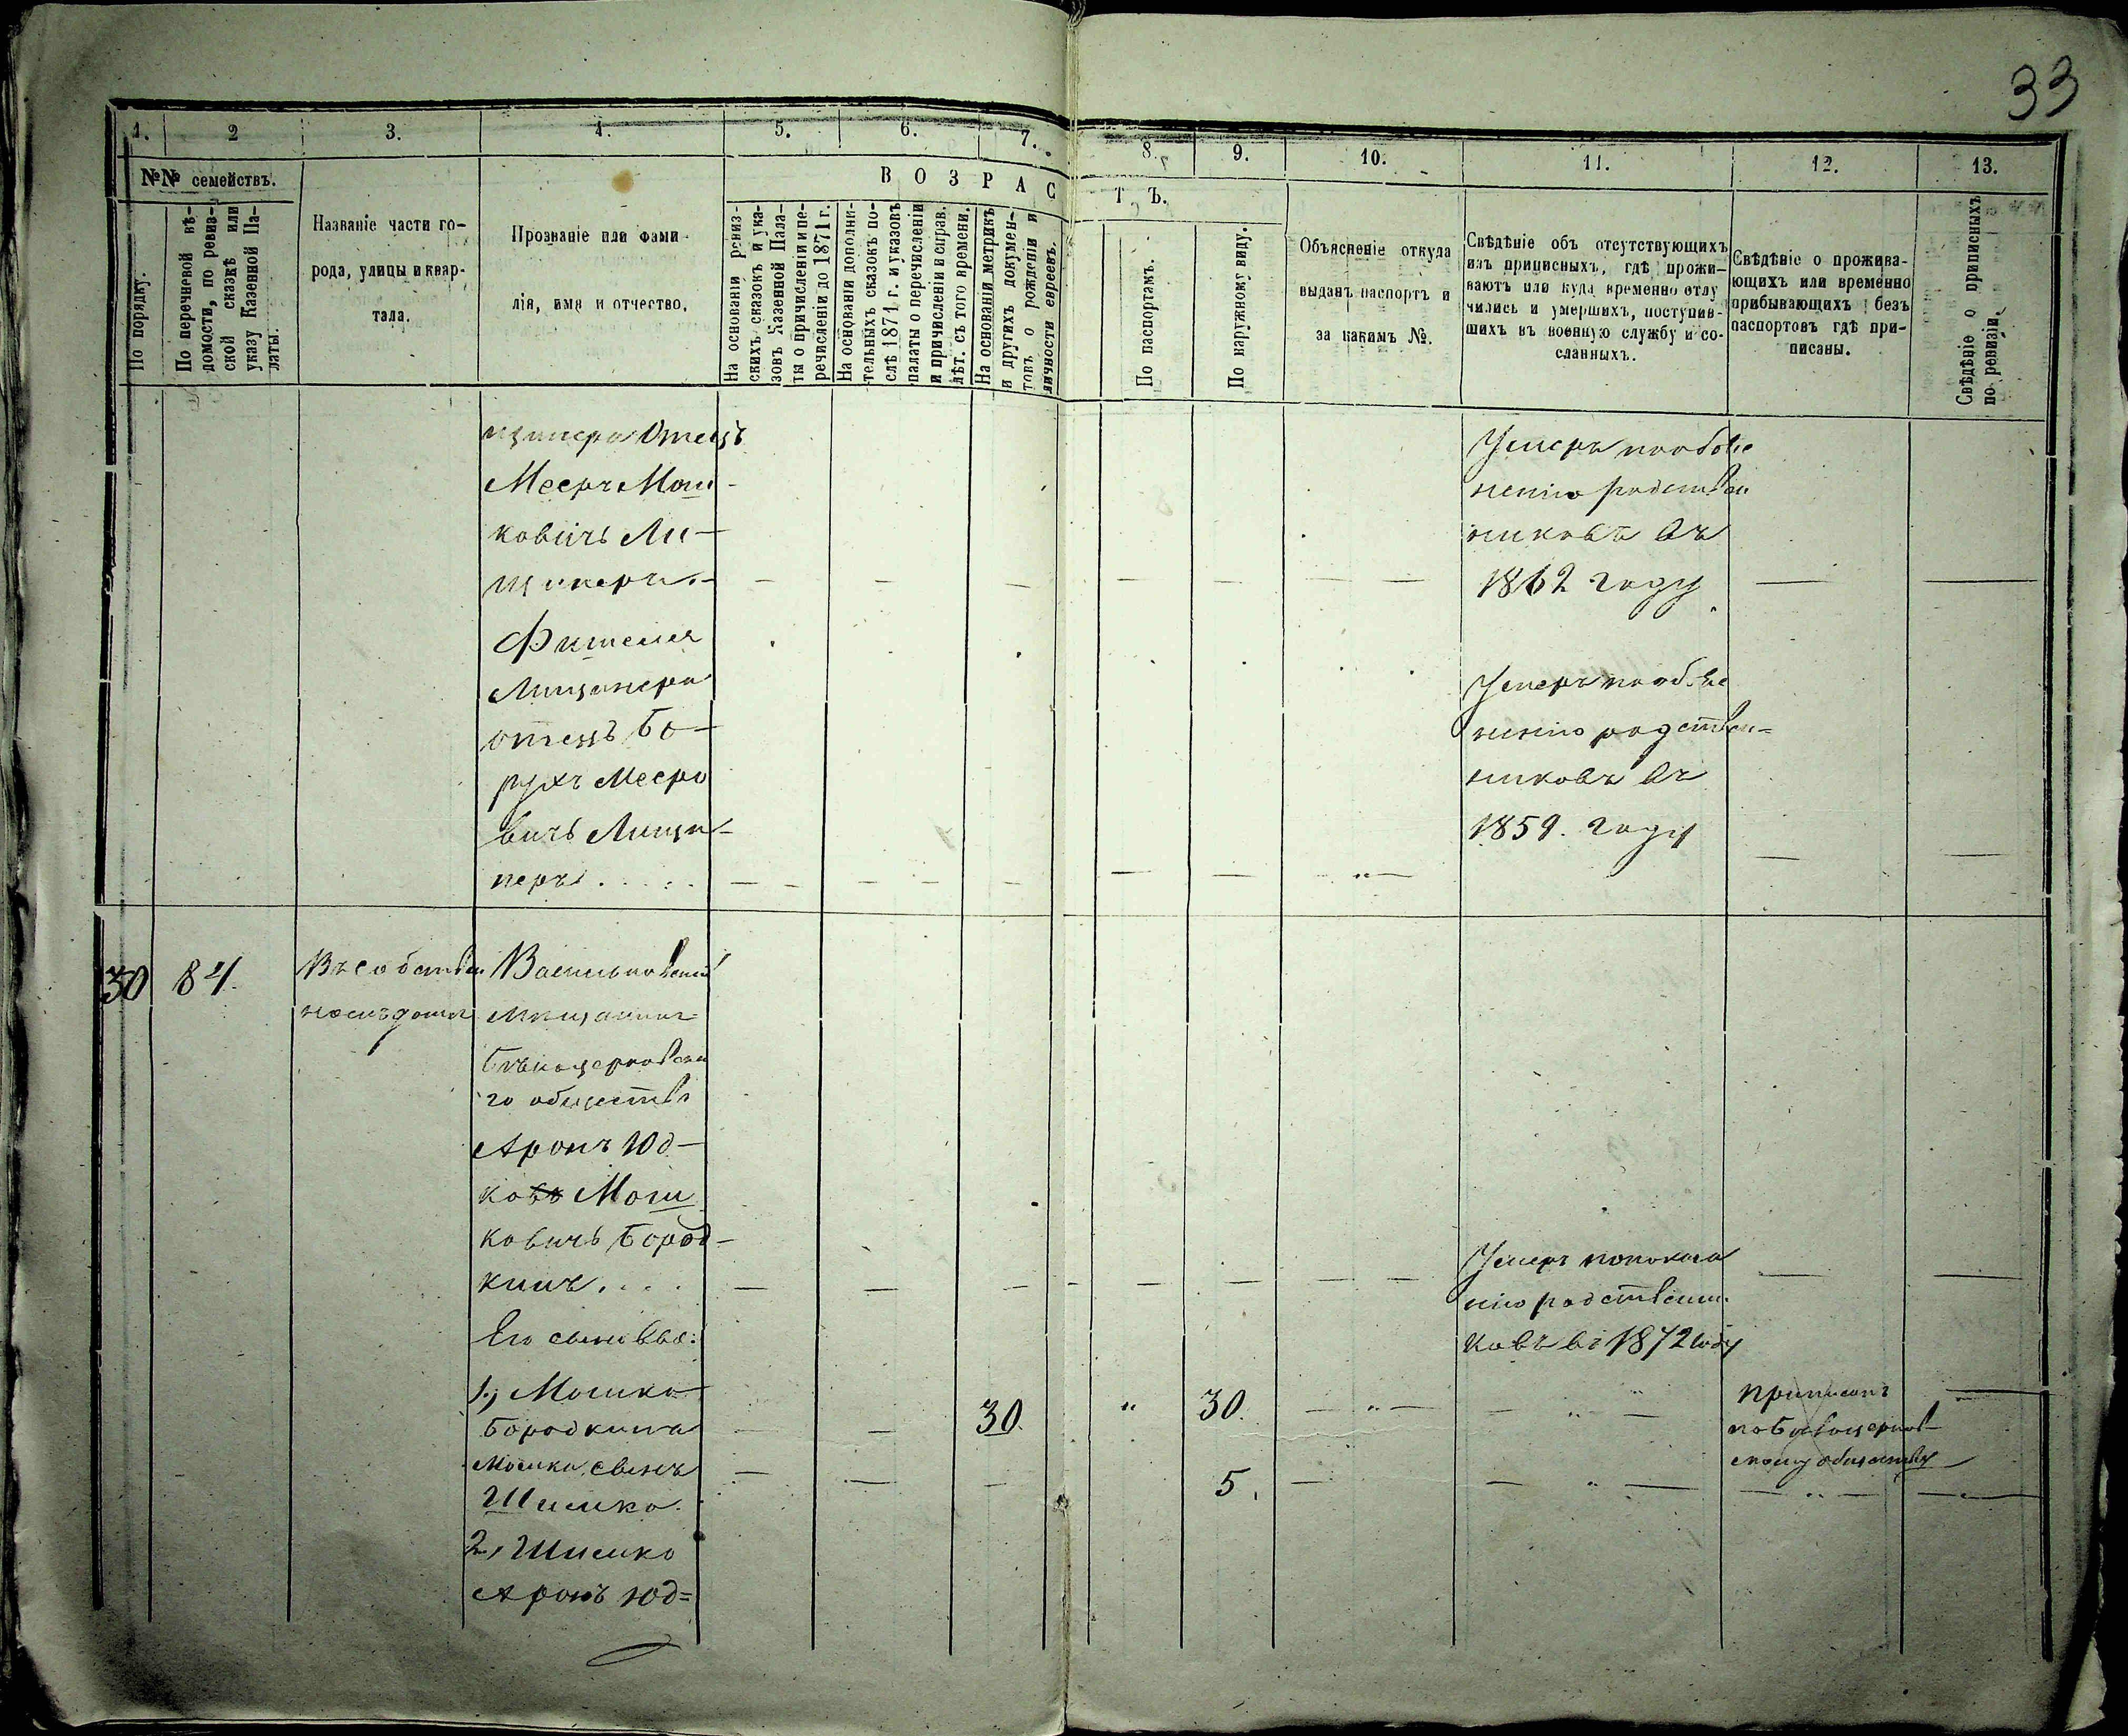 33
1.
2
3.
4.
5.
6.
7.
8.
9.
10.
11.
12.
13.
№№ семействъ.
По порядку.
По перечневой вѣ-
домости, по ревиз-
ской сказкѣ или
указу Казенной Па-
латы.
Названіе части го-
рода, улицы и квар-
тала.
Прозваніе или фами-
лія, имя и отчество.
ВОЗРАСТЪ.
На основаніи ревиз-
скихъ сказокъ и ука-
зовъ Казенной Пала-
ты о причисленіи и пе-
речисленіи до 1871 г.
На основаніи дополни-
тельныхъ сказокъ по-
слѣ 1871 г. и указовъ
палаты о перечисленіи
и причисленіи и справ.
лѣт. съ того времени.
На основаніи метрикъ
и другихъ докумен-
товъ о рожденіи и
личности евреевъ.
По паспортамъ.
По наружному виду.
Объясненіе откуда
выданъ паспортъ и
за какимъ №.
Свѣдѣніе объ отсутствующихъ
изъ приписныхъ, гдѣ прожи-
ваютъ или куда временно отлу
чились и умершихъ, поступив-
шихъ въ военную службу и со-
сланныхъ.
Свѣдѣніе о прожива-
ющихъ или временно
прибывающихъ безъ
паспортовъ гдѣ при-
писаны.
Свѣдѣніе о приписныхъ
по ревизіи.
щинера Отецъ
Мееръ Мош-
ковичъ Ли-
щинеръ.
Умеръ по объяс
ненію родствен
никовъ въ
1862 году
Фишеля
Лищинера
отецъ Бо-
рухъ Мееро
вичъ Лищи-
неръ . . . . .
Умеръ по объяс
ненію родствен-
никовъ въ
1859. году
30 84. Въ собствен
номъ домѣ
Васильковскій
мѣщанинъ
Бѣлоцерковска
го общества
Аронъ Юд-
ковъ Мош
ковичъ Бород-
кинъ. . . .
Умеръ по показа
нію родственни
ковъ въ 1872 году
Его сыновья:
1., Мошко
Бородкина
30. " 30.
приписанъ
по Бѣлоцерков-
скому обществу
Мошки сынъ
Шимко.
5.
2, Шимко
Аронъ Юд=